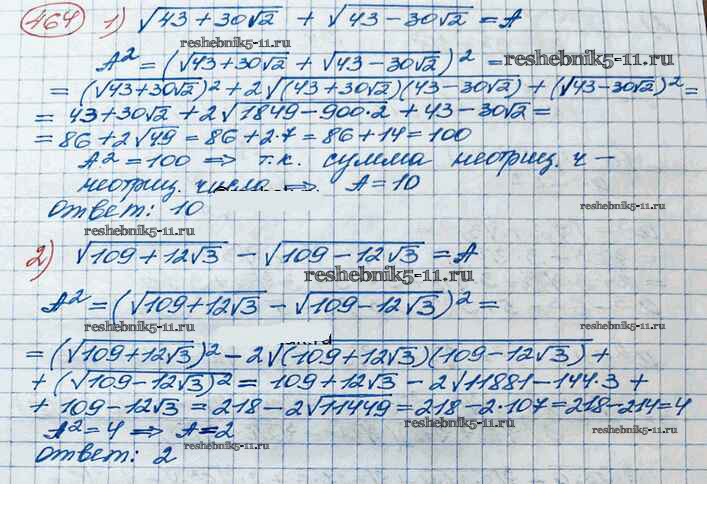 464 1) √43+30√2 + √43-30√2 = A
reshebnik5-11.ru
A² = (√43+30√2 + √43-30√2)² =
reshebnik5-11.ru
= (√43+30√2)² + 2√(43+30√2)(43-30√2) + (√43-30√2)² =
= 43+30√2 + 2√1849-900·2 + 43-30√2 =
= 86+2√49 = 86+2·7 = 86+14 = 100
A² = 100 ⇒ т.к. сумма неотриц. ч-
неотриц. число ⇒ A = 10
Ответ: 10
reshebnik5-11.ru
reshebnik5-11.ru
2) √109+12√3 - √109-12√3 = A
reshebnik5-11.ru
A² = (√109+12√3 - √109-12√3)² =
reshebnik5-11.ru
= (√109+12√3)² - 2√(109+12√3)(109-12√3) +
+ (√109-12√3)² = 109+12√3 - 2√11881-144·3 +
reshebnik5-11.ru
+ 109-12√3 = 218-2√11449 = 218-2·107 = 218-214 = 4
A² = 4 ⇒ A = 2
reshebnik5-11.ru
reshebnik5-11.ru
Ответ: 2
reshebnik5-11.ru